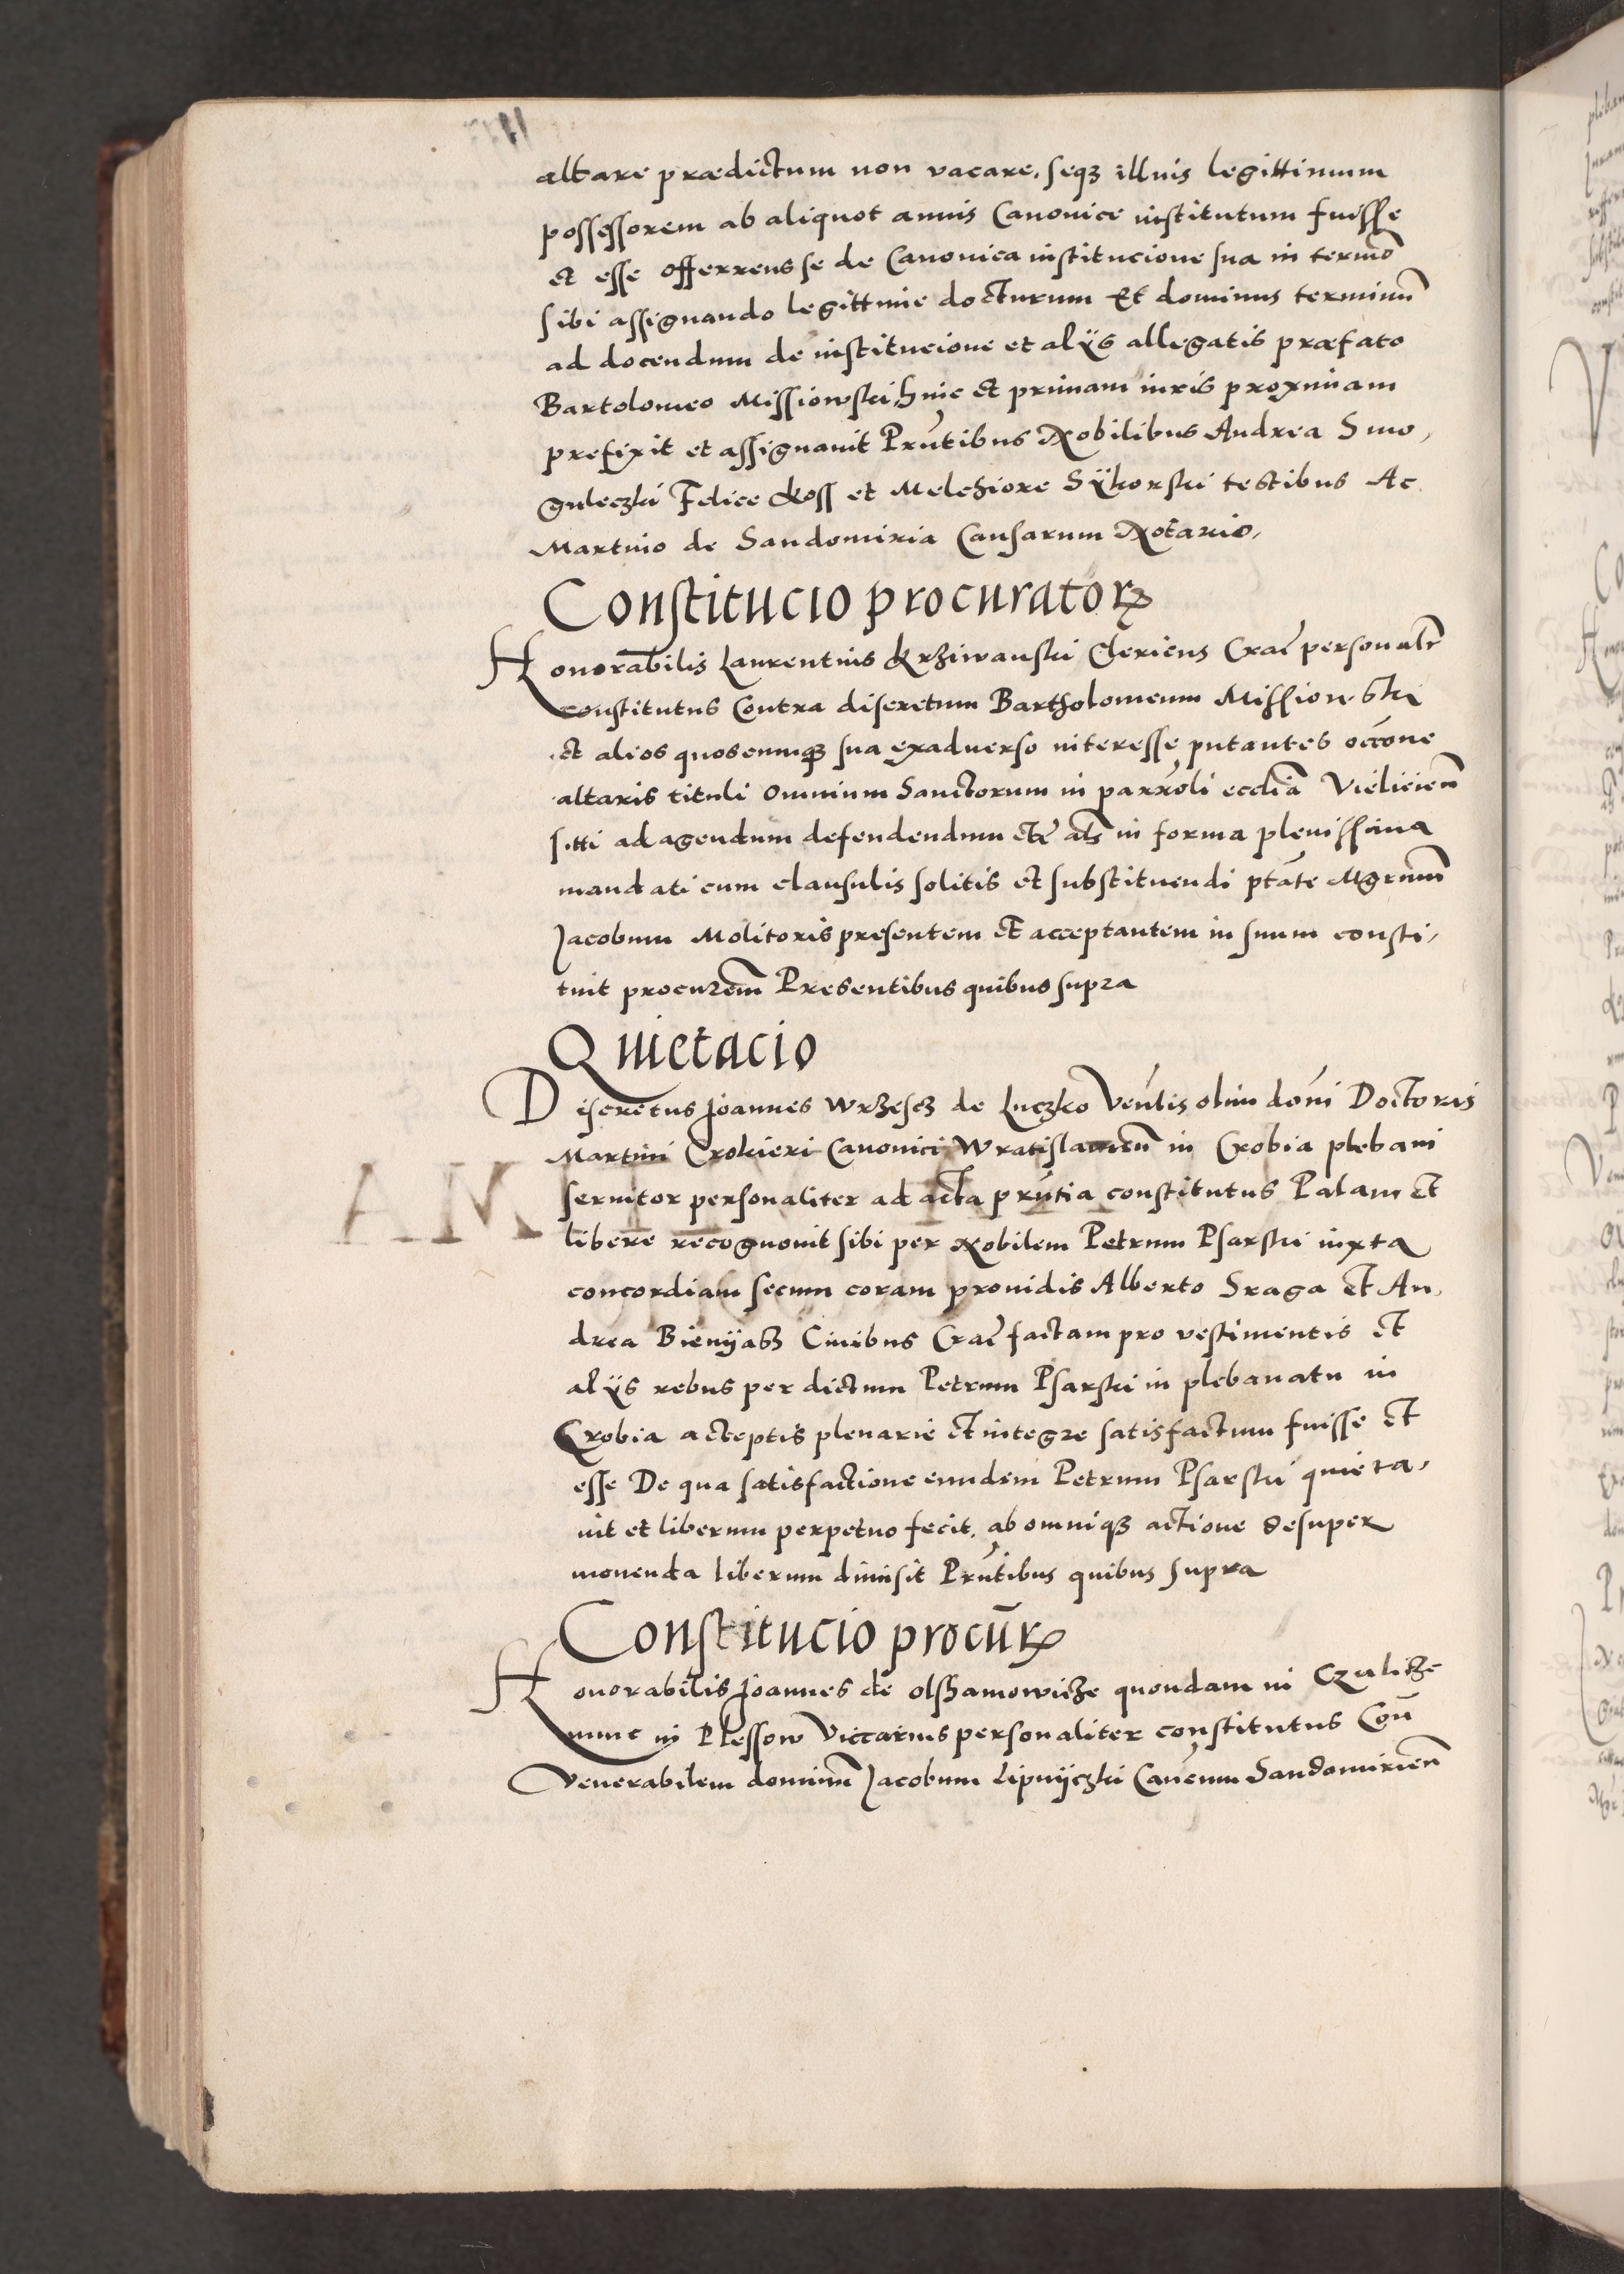 altare prædictum non vacare, seqꝫ illius legittimum
possessorem ab aliquot annis Canonice institutum fuisse
et esse offerrens se de Canonica institucione sua in termīo
sibi assignando legittime docturum Et dominus terminū
ad docendum de institucione et alÿs allegatis præfato
Bartolomeo Missiowski hinc et primam iuris proximam
prefixit et assignauit Prn̄tibus Nobilibus Andrea Smo,
guleczki Felice Koss et Melchiore Sÿkorski testibus Ac
Martino de Sandomiria Causarum Notario,
Constitucio procuratorꝝ
Honorabilis Laurentius Krziwanski Clericus Crac̄ personalr̄
constitutus Contra discretum Bartholomeum Missionski
et alios quoscunqꝫ sua exaduerso interesse putantes occōne
altaris tituli Omnium Sanctorum in parrōli eccliā Vieliciēn
sitti ad agendum defendendum etc̄ als̄ in forma plenissima
mandati cum clausulis solitis et substituendi ptāte Mgrum̄
Jacobum Molitoris presentem et acceptantem in suum consti,
tuit procurem̄ Presentibus quibus supra
Quietacio
Discretus Joannes Wrzescz de Luczko Ven̄lis olim dōni Doctoris
Martini Crokieri Canonici Wratislauien̄ in Crobia plebani
seruitor personaliter ad acta prn̄tia constitutus Palam et
libere recognouit sibi per Nobilem Petrum Psarski iuxta
concordiam secum coram prouidis Alberto Sraga et An,
drea Bienÿasz Ciuibus Crac̄ factam pro vestimentis et
alÿs rebus per dictum Petrum Psarski in plebanatu in
Crobia acceptis plenarie et integre satisfactum fuisse et
esse De qua satisfactione eundem Petrum Psarski quieta,
uit et liberum perpetuo fecit, ab omniqꝫ actione desuper
mouenda liberum dimisit Prn̄tibus quibus supra
Constitucio procūrꝝ
Honorabilis Joannes de Olschamowicze quondam in Czulicze
nunc in Plessow Viccarius personaliter constitutus Con̄
Venerabilem dominū Jacobum Lipnÿczki Can̄cum Sandomirien̄